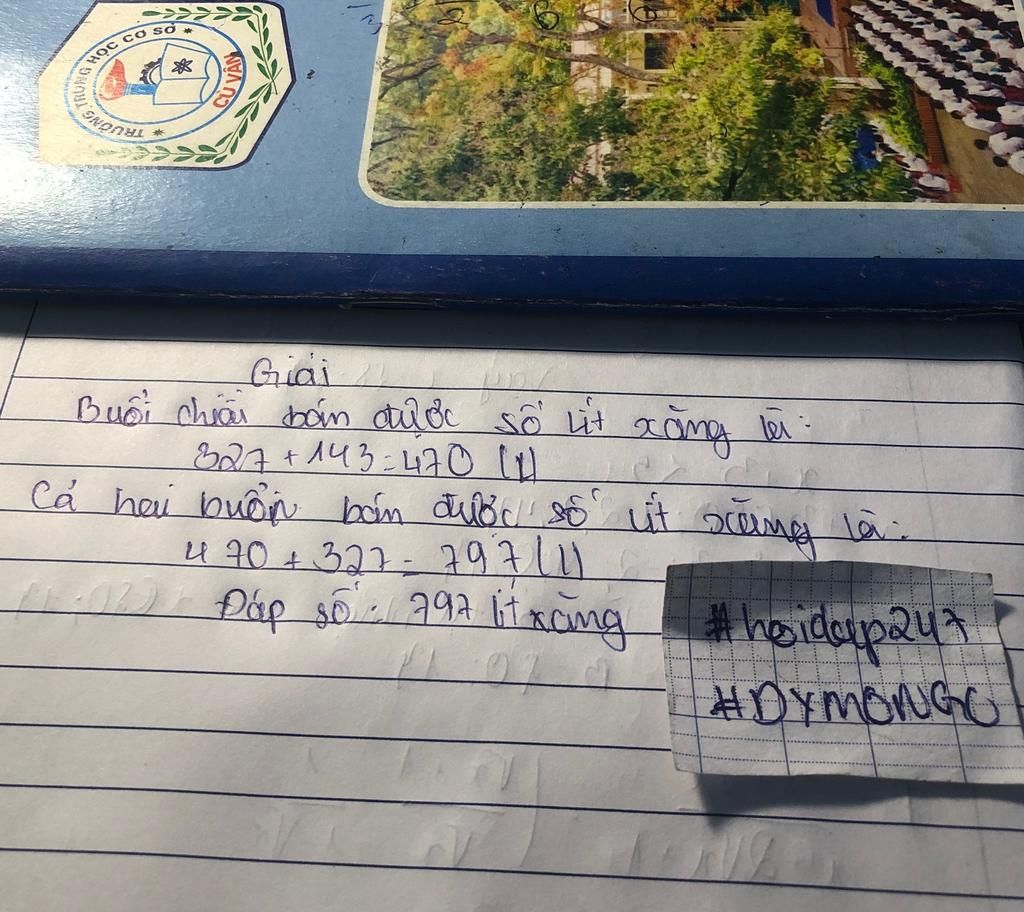 TRƯỜNG TRUNG HỌC CƠ SỞ
CÙ VÂN
Giải
Buổi chiều bán được số lít xăng là:
327 + 143 = 470 (l)
Cả hai buổi bán được số lít xăng là:
470 + 327 = 797 (l)
Đáp số: 797 lít xăng
#hoidap247
#DYMONGC